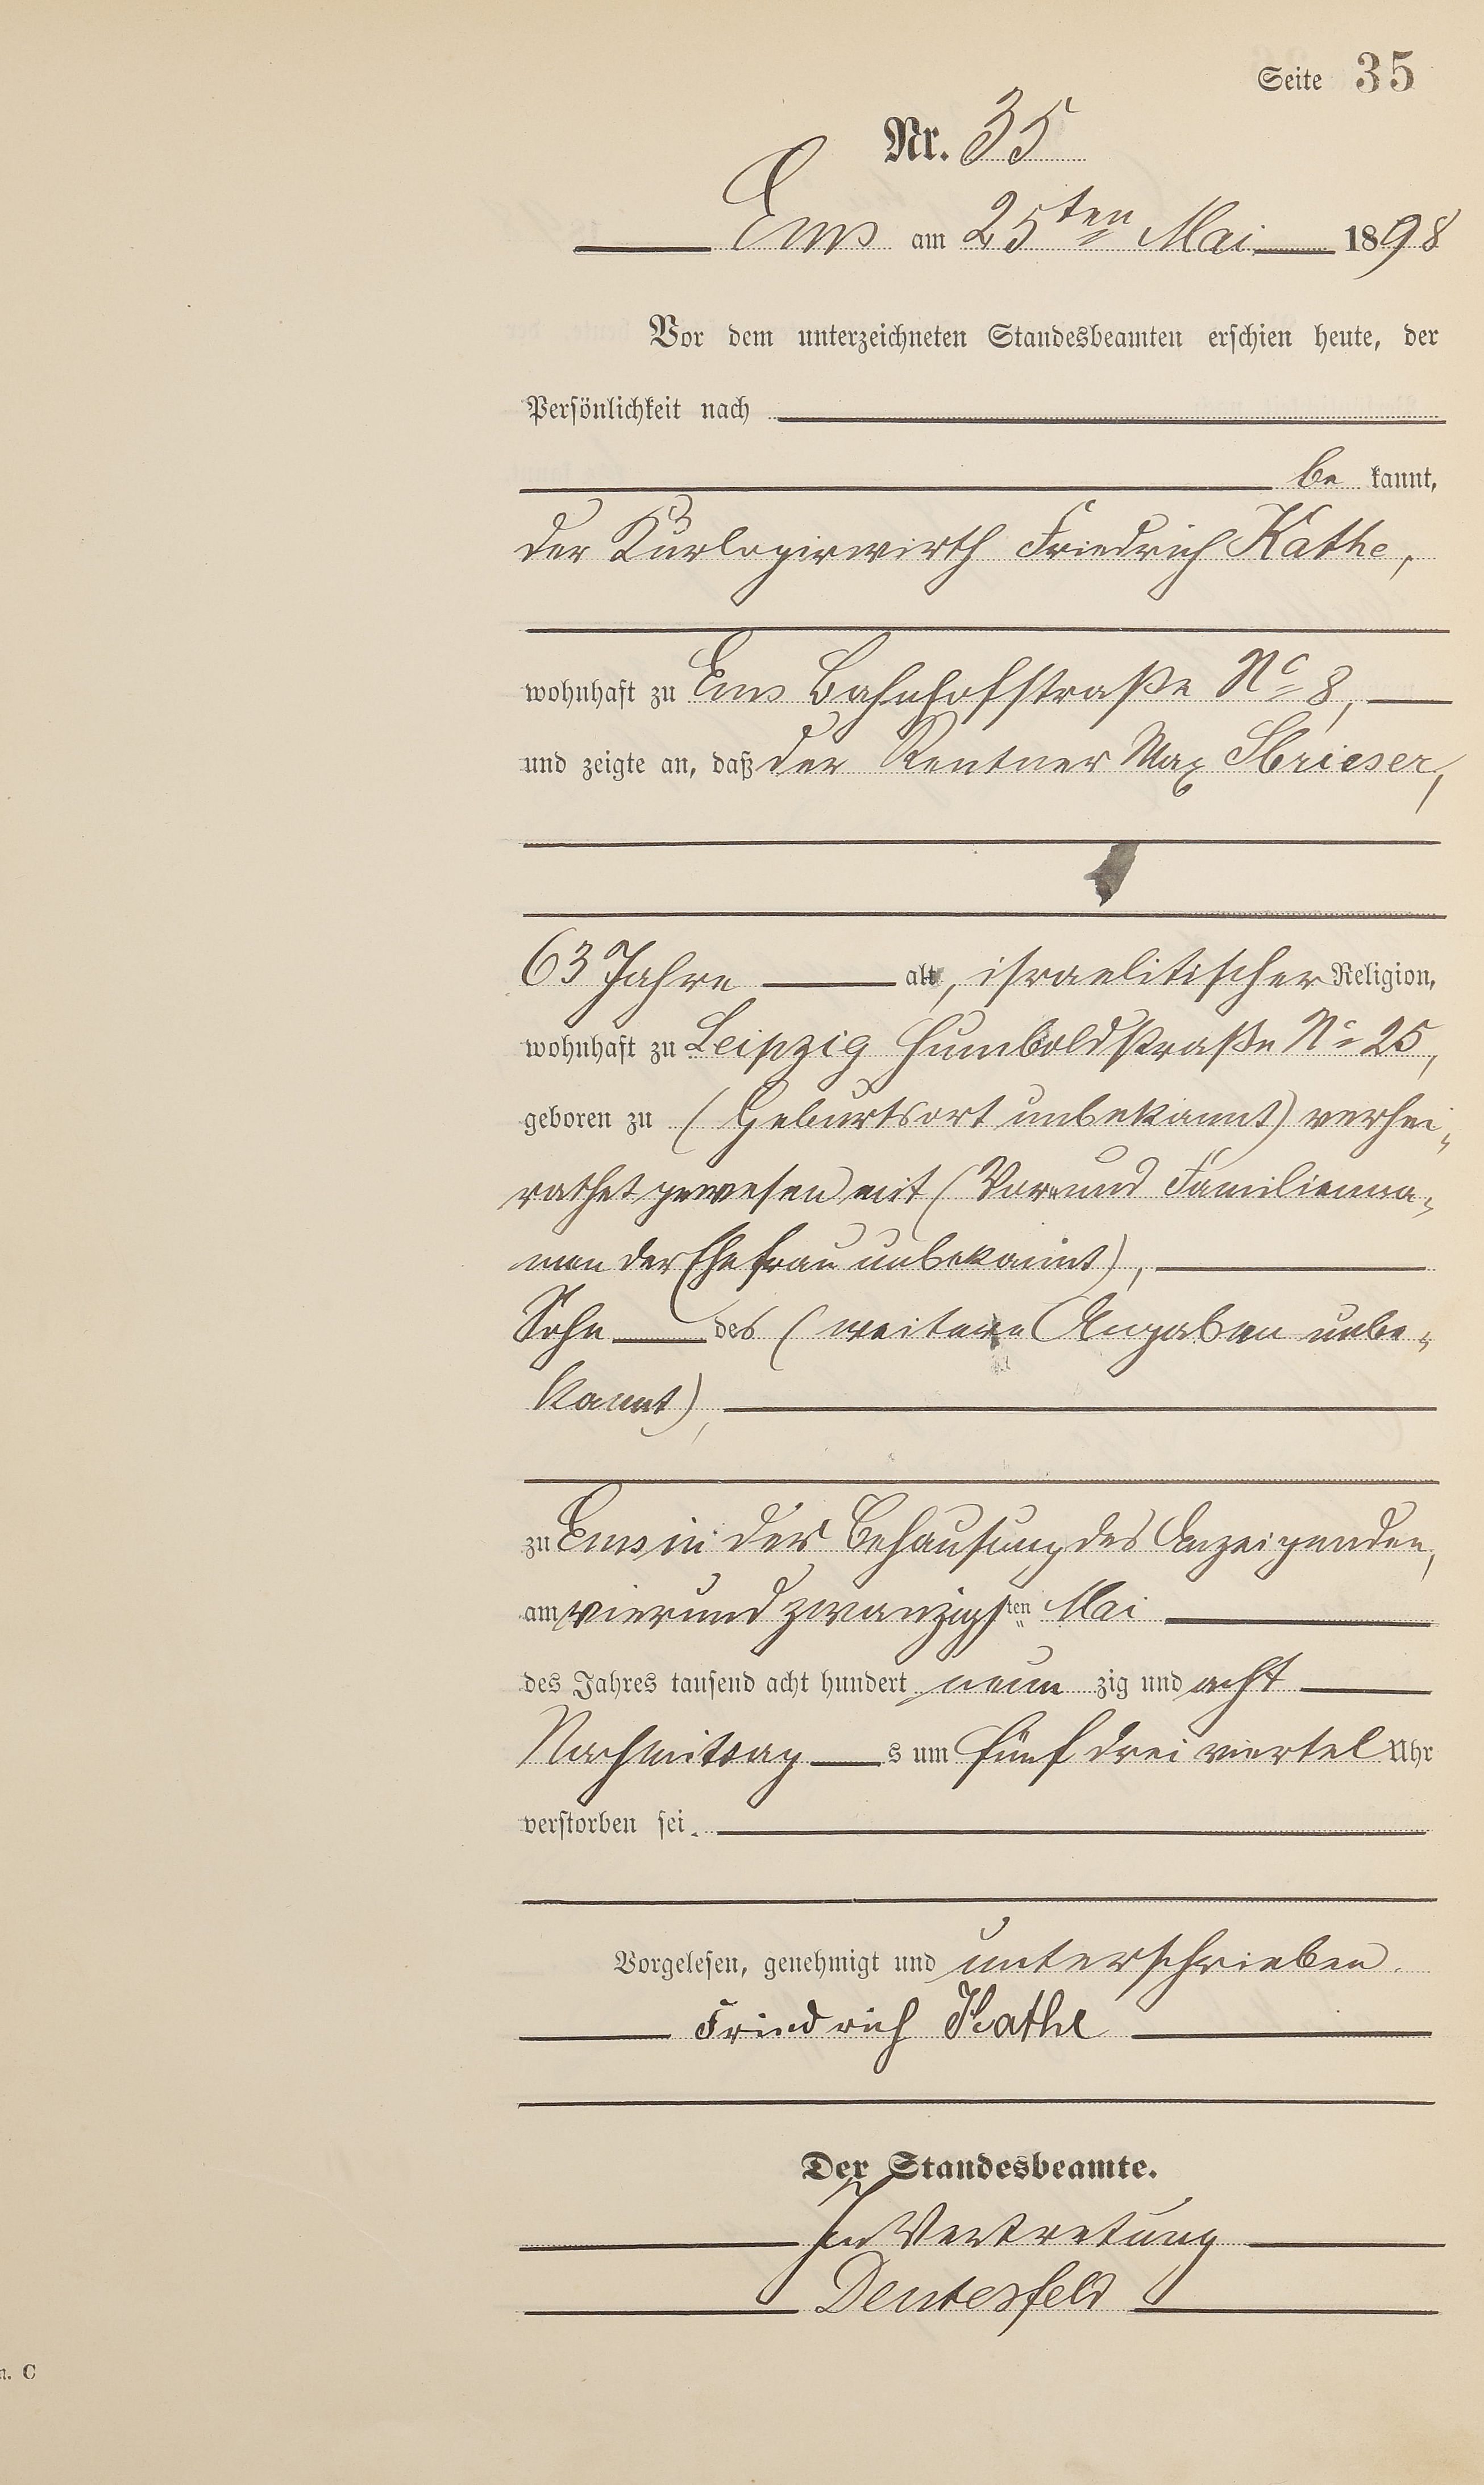 Seite 35
Nr. 35
Ems am 25ten Mai 1898
Vor dem unterzeichneten Standesbeamten erschien heute, der
Persönlichkeit nach
be kannt,
der Kurlogirwirth Friedrich Kathe,
wohnhaft zu Ems Bahnhofstraße No 8,
und zeigte an, daß der Rentner Max Sbrieser,
63 Jahre alt, israelitischer Religion,
wohnhaft zu Leipzig Humboldstraße No 25,
geboren zu (Geburtsort unbekannt) verhei-
rathet gewesen mit (Vor- und Familienna-
men der Ehefrau unbekannt),
Sohn des (weitere Angaben unbe-
kannt),
zu Ems in der Behausung des Anzeigenden,
am vierundzwanzigsten Mai
des Jahres tausend acht hundert neun zig und acht
Nachmittag s um fünf drei viertel Uhr
verstorben sei.
Vorgelesen, genehmigt und unterschrieben.
Friedrich Kathe
Der Standesbeamte.
In Vertretung
n. C